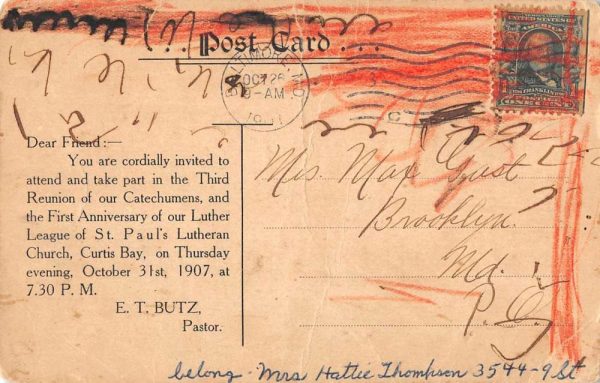 Post Card
BALTIMORE, MD.
OCT 26
9-AM
Dear Friend:—
You are cordially invited to
attend and take part in the Third
Reunion of our Catechumens, and
the First Anniversary of our Luther
League of St. Paul's Lutheran
Church, Curtis Bay, on Thursday
evening, October 31st, 1907, at
7.30 P. M.
E. T. BUTZ,
Pastor.
Mrs Max Gust
Brooklyn
Md.
P. O.
belong - Mrs Hattie Thompson 3544-9 St